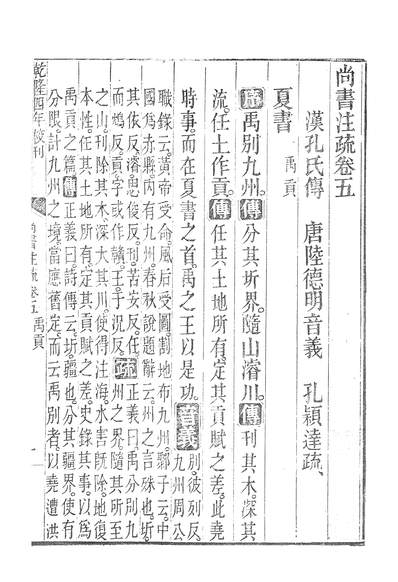 尚書注疏卷五
漢孔氏傳　唐陸德明音義　孔穎達疏
夏書
禹貢
序禹別九州。傳分其圻界。隨山濬川。傳刊其木。深其
流。任土作貢。傳任其土地所有。定其貢賦之差。此堯
時事。而在夏書之首。禹之王以是功。音義別彼列反。九州周公
職錄云。黃帝受命。風后受圖。割地布九州。鄒子云。中
國為赤縣。內有九州。春秋說題辭云。州之言殊也。圻
其依反。濬思俊反。刊苦安反。任
而鴆反。貢字或作贛。王于況反。疏正義曰禹分別九
州之界隨其所至
之山。刊除其木。深大其川。使得注海。水害既除。地復
本性。任其土地所有。定其貢賦之差。史錄其事。以為
禹貢之篇。傳正義曰詩傳云。圻。疆也。分其疆界。使有
分限。計九州之境。當應舊定。而云禹別者。以堯遭洪
乾隆四年校刊　尚書注疏卷五　禹貢　一